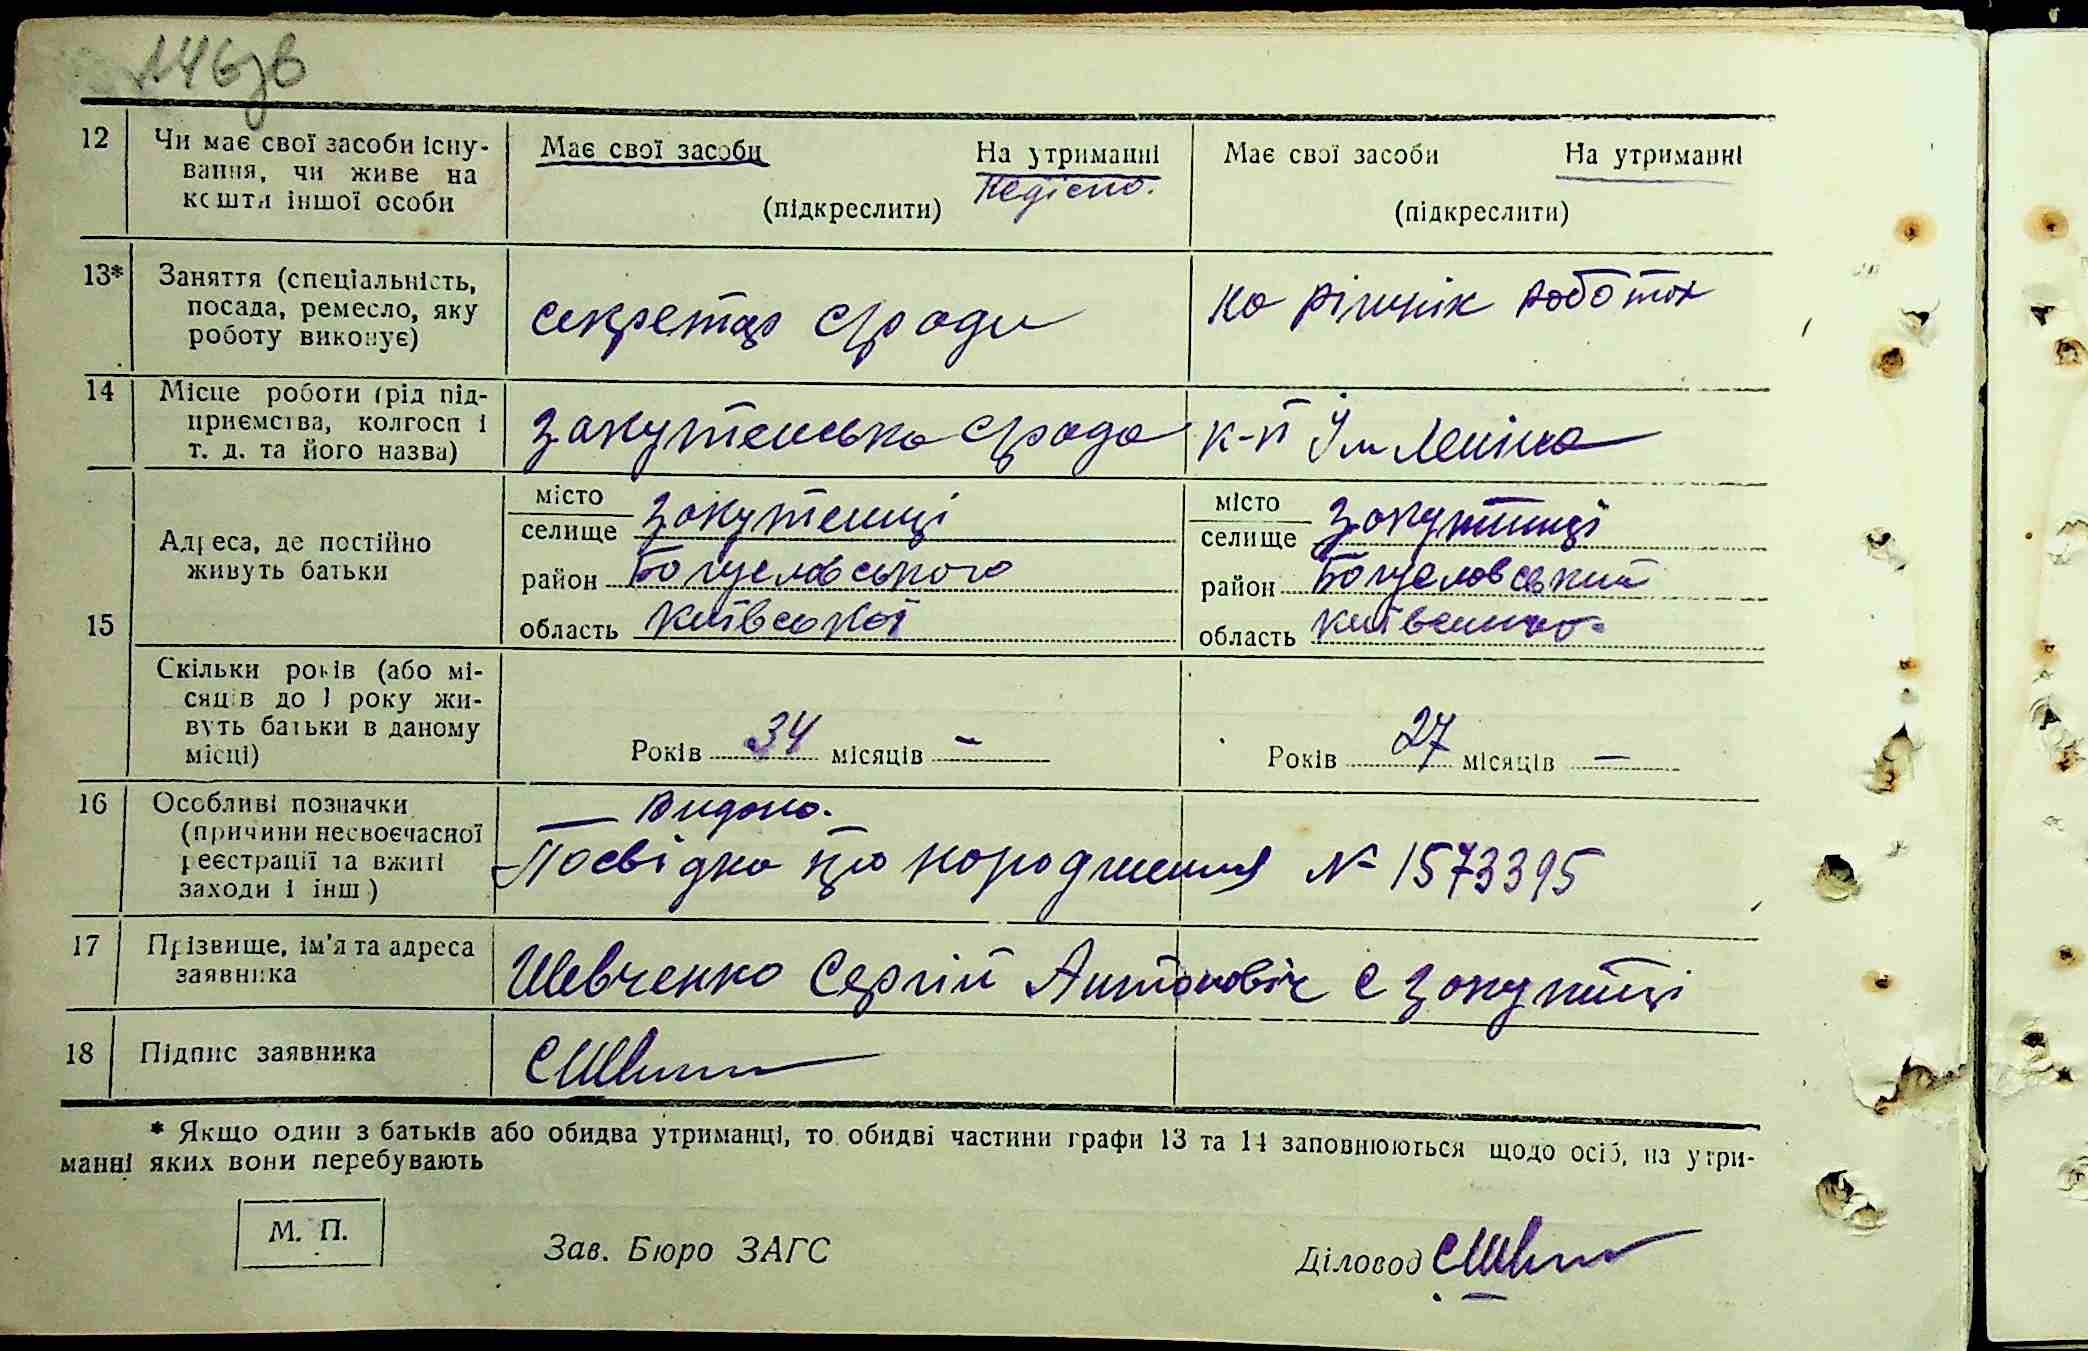 146зв
12 Чи має свої засоби існу- Має свої засоби На утриманні Має свої засоби На утриманні
вання, чи живе на недісно.
кошти іншої особи (підкреслити) (підкреслити)
13* Заняття (спеціальність,
посада, ремесло, яку секретар с/ради на різних роботах
роботу виконує)
14 Місце роботи (рід під-
приємства, колгосп і Закутенська с/рада к-п Ім Леніна
т. д. та його назва)
15 Адреса, де постійно
живуть батьки
місто
селище Закутенці
район Богуславського
область Київської
місто
селище Закутинці
район Богуславський
область
Скільки років (або мі-
сяців до 1 року жи-
вуть батьки в даному
місці) Років 34 місяців – Років 27 місяців –
16 Особливі позначки
(причини несвоєчасної
реєстрації та вжиті
заходи і інш.)
Видано.
Посвідка про народження № 1573395
17 Прізвище, ім'я та адреса
заявника Шевченко Сергій Антонович с Закутинці
18 Підпис заявника
* Якщо один з батьків або обидва утриманці, то обидві частини графи 13 та 14 заповнюються щодо осіб, на утри-
манні яких вони перебувають
М. П. Зав. Бюро ЗАГС Діловод